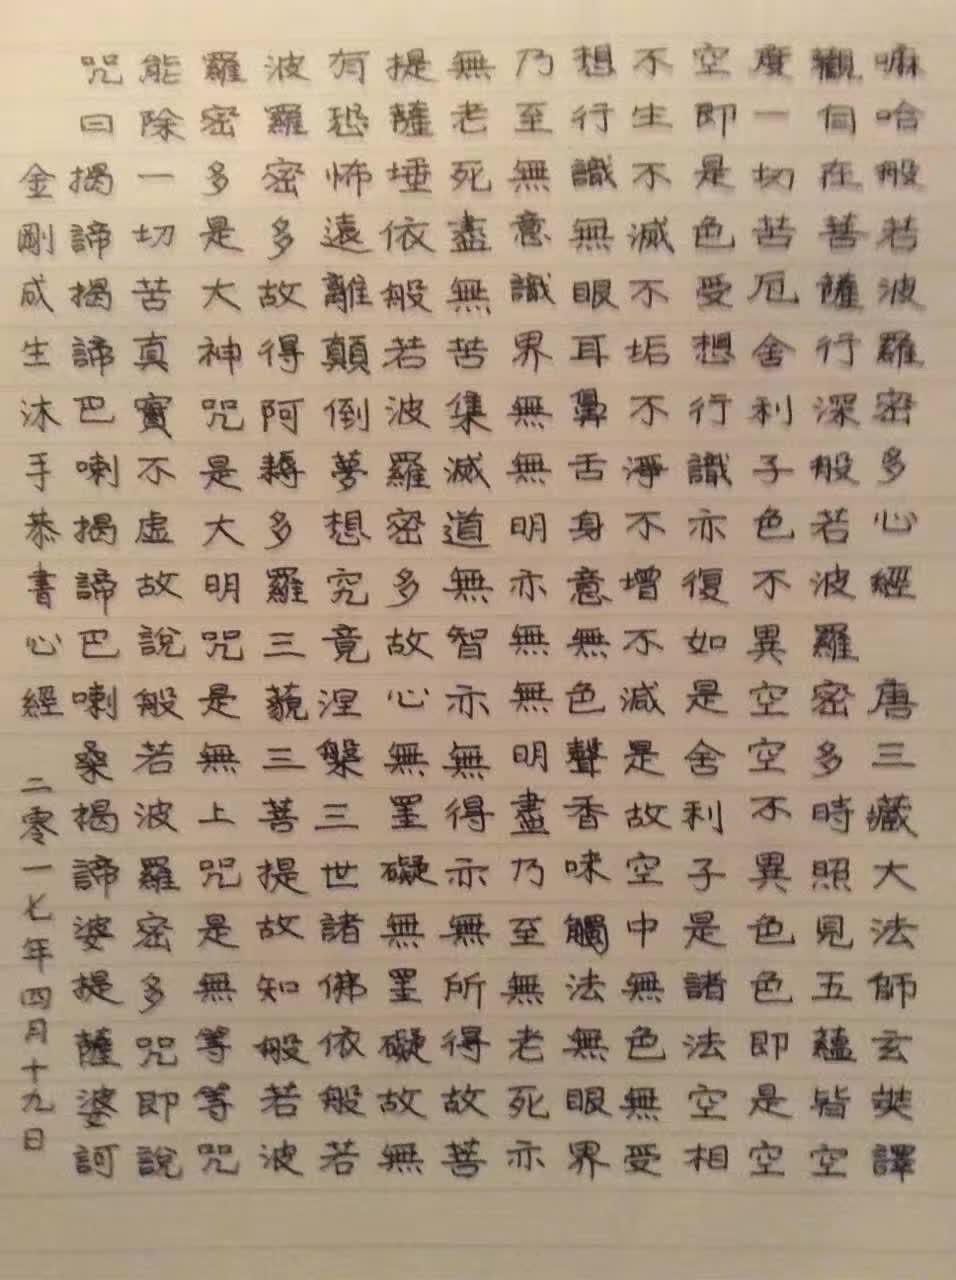 嘛哈般若波羅密多心經 唐三藏大法師玄奘譯
觀自在菩薩行深般若波羅密多時照見五蘊皆空
度一切苦厄舍利子色不異空空不異色色即是空
空即是色受想行識亦復如是舍利子是諸法空相
不生不滅不垢不淨不增不減是故空中無色無受
想行識無眼耳鼻舌身意無色聲香味觸法無眼界
乃至無意識界無無明亦無無明盡乃至無老死亦
無老死盡無苦集滅道無智亦無得亦無所得故菩
提薩埵依般若波羅密多故心無罣礙無罣礙故無
有恐怖遠離顛倒夢想究竟涅槃三世諸佛依般若
波羅密多故得阿耨多羅三藐三菩提故知般若波
羅密多是大神咒是大明咒是無上咒是無等等咒
能除一切苦真實不虛故說般若波羅密多咒即說
咒曰揭諦揭諦巴喇揭諦巴喇桑揭諦婆提薩婆訶
金剛成生沐手恭書心經 二零一七年四月十九日